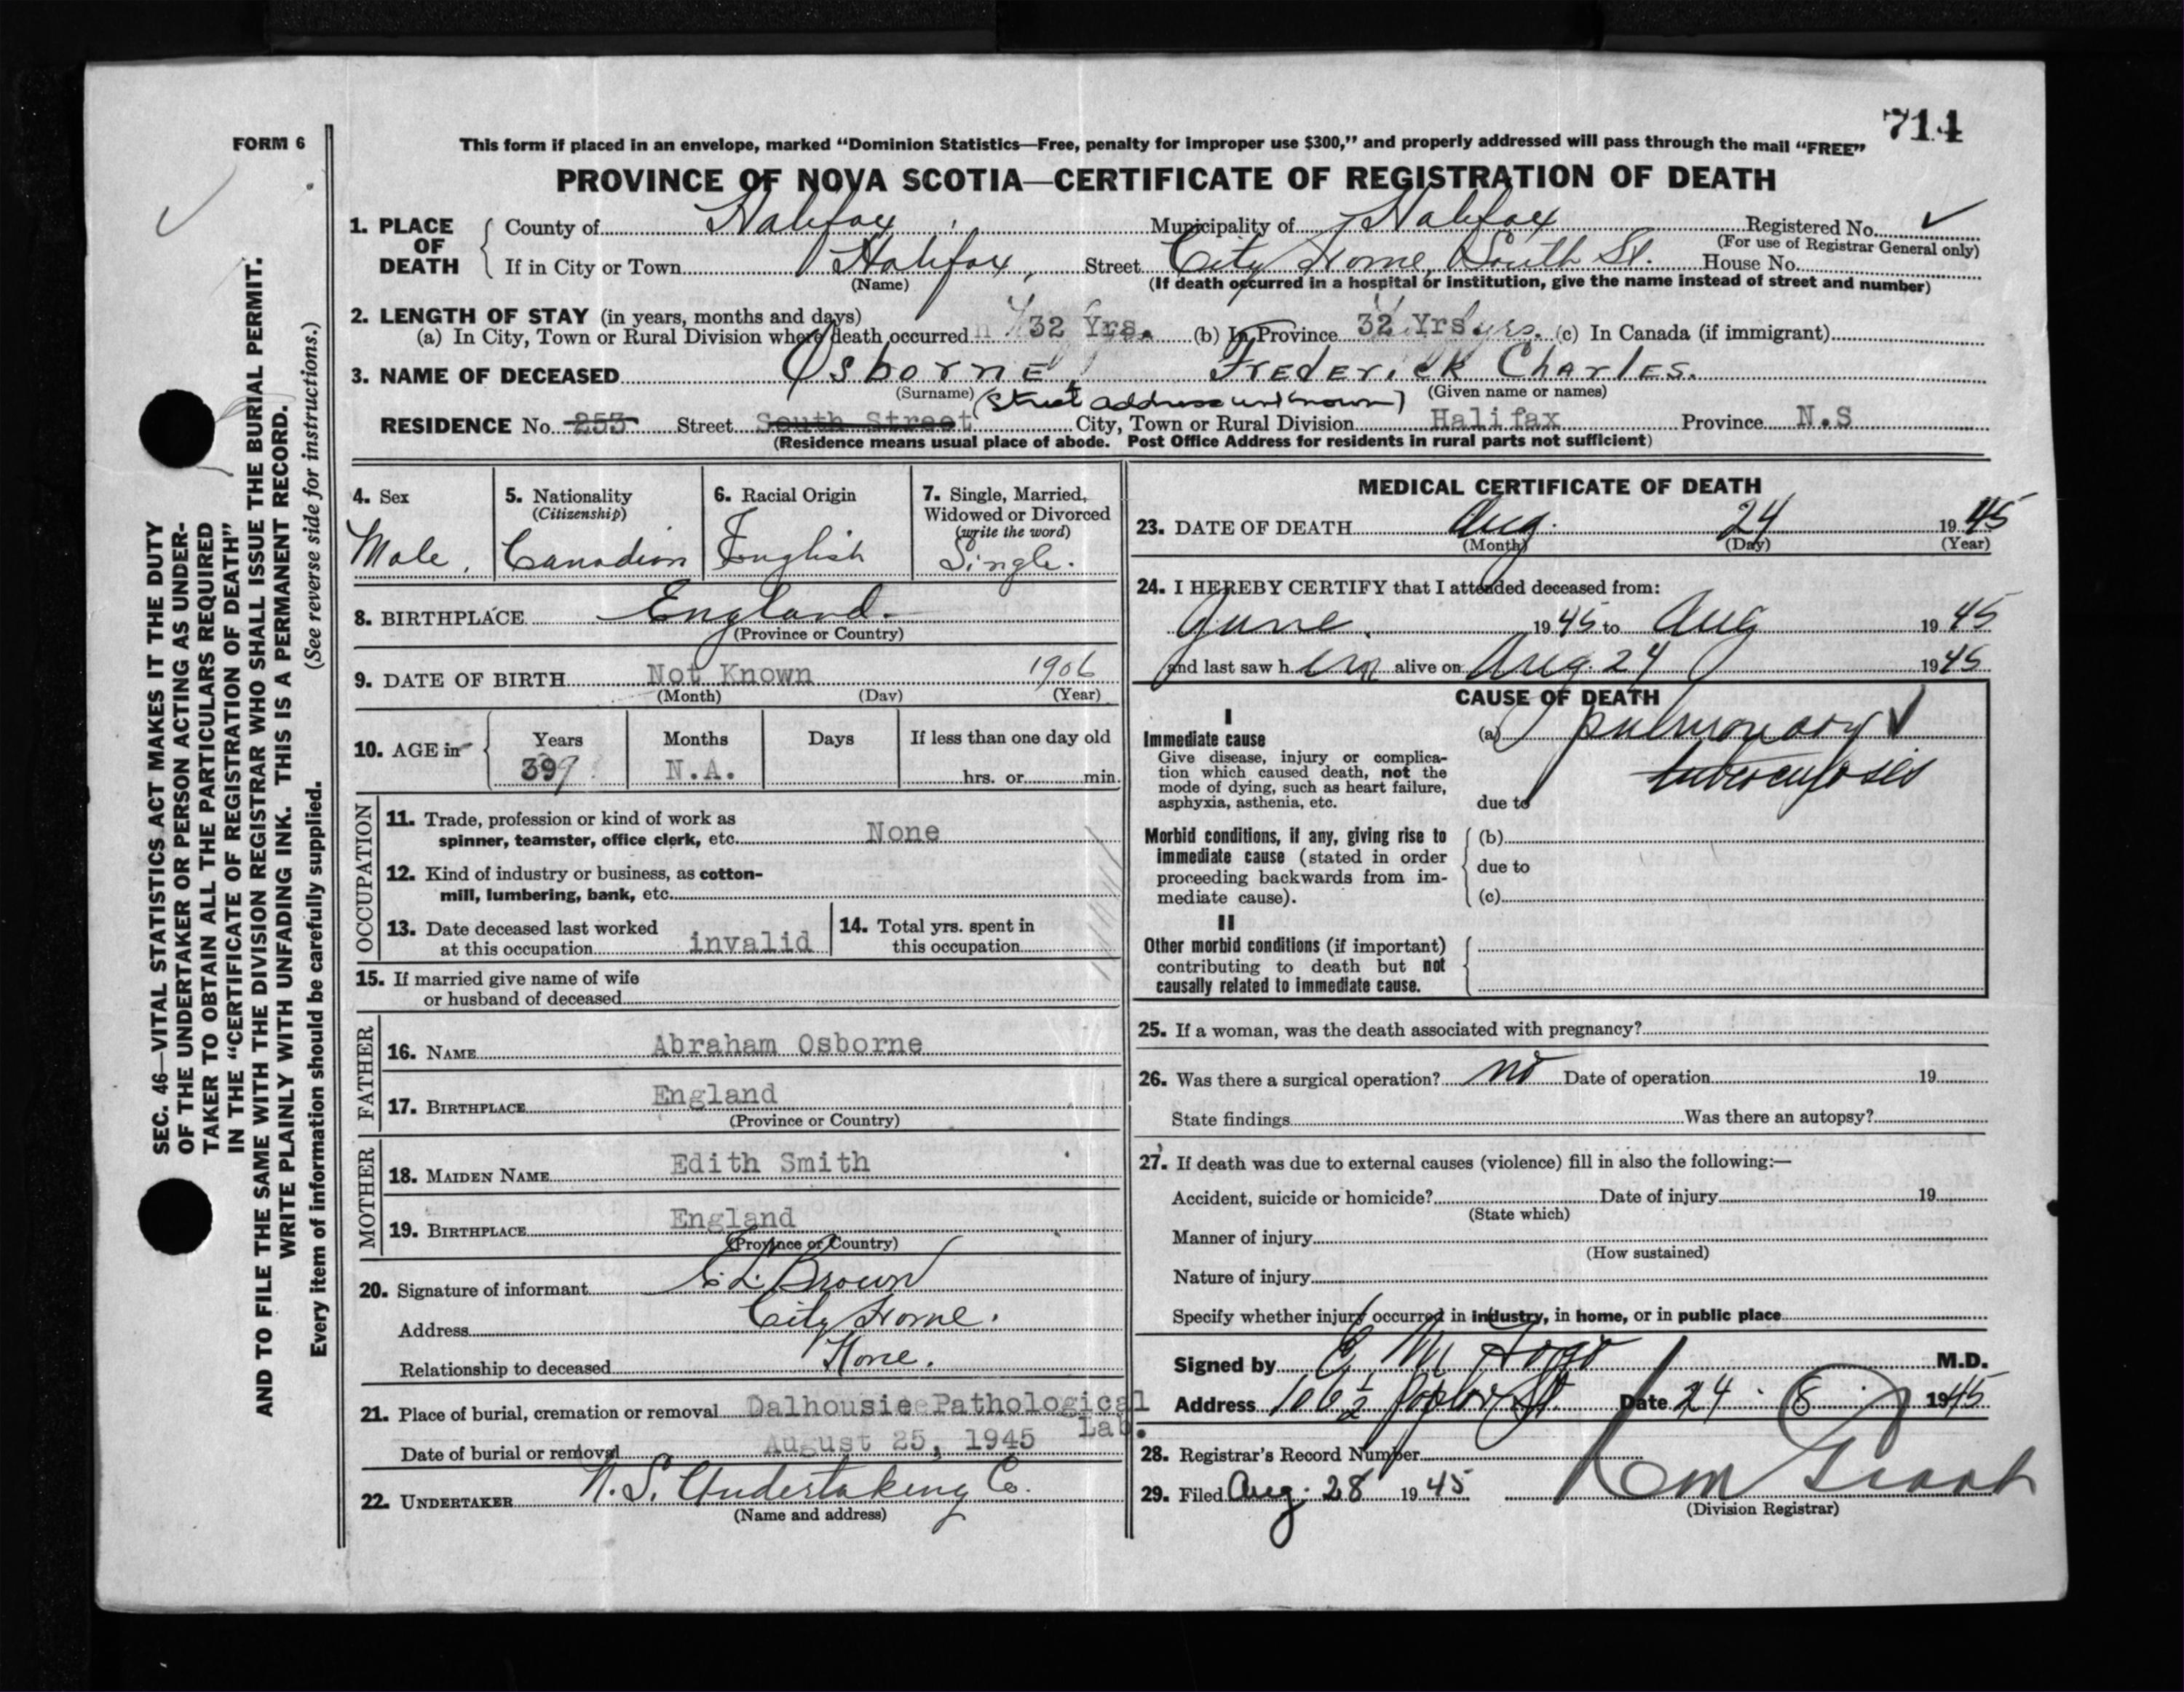 714
FORM 6
This form if placed in an envelope, marked “Dominion Statistics—Free, penalty for improper use $300,” and properly addressed will pass through the mail “FREE”
PROVINCE OF NOVA SCOTIA—CERTIFICATE OF REGISTRATION OF DEATH
SEC. 46—VITAL STATISTICS ACT MAKES IT THE DUTY
OF THE UNDERTAKER OR PERSON ACTING AS UNDER-
TAKER TO OBTAIN ALL THE PARTICULARS REQUIRED
IN THE “CERTIFICATE OF REGISTRATION OF DEATH”
AND TO FILE THE SAME WITH THE DIVISION REGISTRAR WHO SHALL ISSUE THE BURIAL PERMIT.
WRITE PLAINLY WITH UNFADING INK. THIS IS A PERMANENT RECORD.
Every item of information should be carefully supplied. (See reverse side for instructions.)
1. PLACE OF DEATH
County of Halifax Municipality of Halifax Registered No.
(For use of Registrar General only)
If in City or Town Halifax, Street City Home, South St. House No.
(Name) (If death occurred in a hospital or institution, give the name instead of street and number)
2. LENGTH OF STAY (in years, months and days)
(a) In City, Town or Rural Division where death occurred 32 Yrs. (b) In Province 32 Yrs yrs. (c) In Canada (if immigrant)
3. NAME OF DECEASED Osborne, Frederick Charles.
(Surname) (Given name or names)
(Street address unknown)
RESIDENCE No. 253 Street South Street City, Town or Rural Division Halifax Province N.S
(Residence means usual place of abode. Post Office Address for residents in rural parts not sufficient)
4. Sex
Male.
5. Nationality
(Citizenship)
Canadian
6. Racial Origin
English
7. Single, Married,
Widowed or Divorced
(write the word)
Single.
8. BIRTHPLACE England.
(Province or Country)
9. DATE OF BIRTH Not Known 1906
(Month) (Day) (Year)
10. AGE in
Years Months Days If less than one day old
39 N.A. hrs. or min.
OCCUPATION
11. Trade, profession or kind of work as
spinner, teamster, office clerk, etc. None
12. Kind of industry or business, as cotton-
mill, lumbering, bank, etc.
13. Date deceased last worked
at this occupation invalid
14. Total yrs. spent in
this occupation
15. If married give name of wife
or husband of deceased
FATHER
16. NAME Abraham Osborne
17. BIRTHPLACE England
(Province or Country)
MOTHER
18. MAIDEN NAME Edith Smith
19. BIRTHPLACE England
(Province or Country)
20. Signature of informant E. L. Brown
Address City Home.
Relationship to deceased None.
21. Place of burial, cremation or removal Dalhousie Pathological
Lab.
Date of burial or removal August 25, 1945
22. UNDERTAKER N. S. Undertaking Co.
(Name and address)
MEDICAL CERTIFICATE OF DEATH
23. DATE OF DEATH Aug. 24 1945
(Month) (Day) (Year)
24. I HEREBY CERTIFY that I attended deceased from:
June 1945 to Aug 1945
and last saw h im alive on Aug. 24 1945
CAUSE OF DEATH
I
Immediate cause
Give disease, injury or complica-
tion which caused death, not the
mode of dying, such as heart failure,
asphyxia, asthenia, etc.
(a) pulmonary
tuberculosis
due to
Morbid conditions, if any, giving rise to
immediate cause (stated in order
proceeding backwards from im-
mediate cause).
(b)
due to
(c)
II
Other morbid conditions (if important)
contributing to death but not
causally related to immediate cause.
25. If a woman, was the death associated with pregnancy?
26. Was there a surgical operation? no Date of operation 19
State findings Was there an autopsy?
27. If death was due to external causes (violence) fill in also the following:—
Accident, suicide or homicide? Date of injury 19
(State which)
Manner of injury
(How sustained)
Nature of injury
Specify whether injury occurred in industry, in home, or in public place
Signed by M.D.
Address 106½ St. Date 24 8 1945
28. Registrar's Record Number
29. Filed Aug. 28 1945
(Division Registrar)